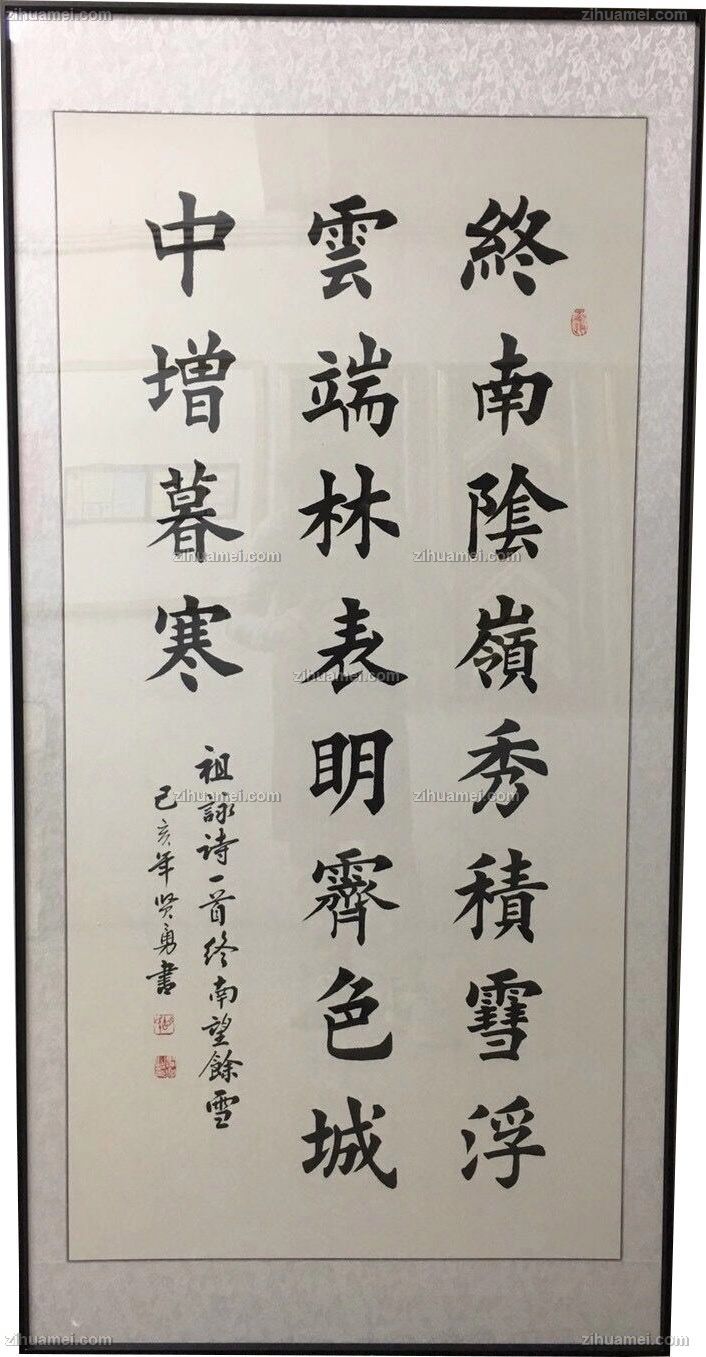 終南陰嶺秀積雪浮
雲端林表明霽色城
中增暮寒
祖詠诗一首终南望餘雪
己亥年贤勇書
zihuamei.com
zihuamei.com
zihuamei.com
zihuamei.com
zihuamei.com
zihuamei.com
zihuamei.com
zihuamei.com
zihuamei.com